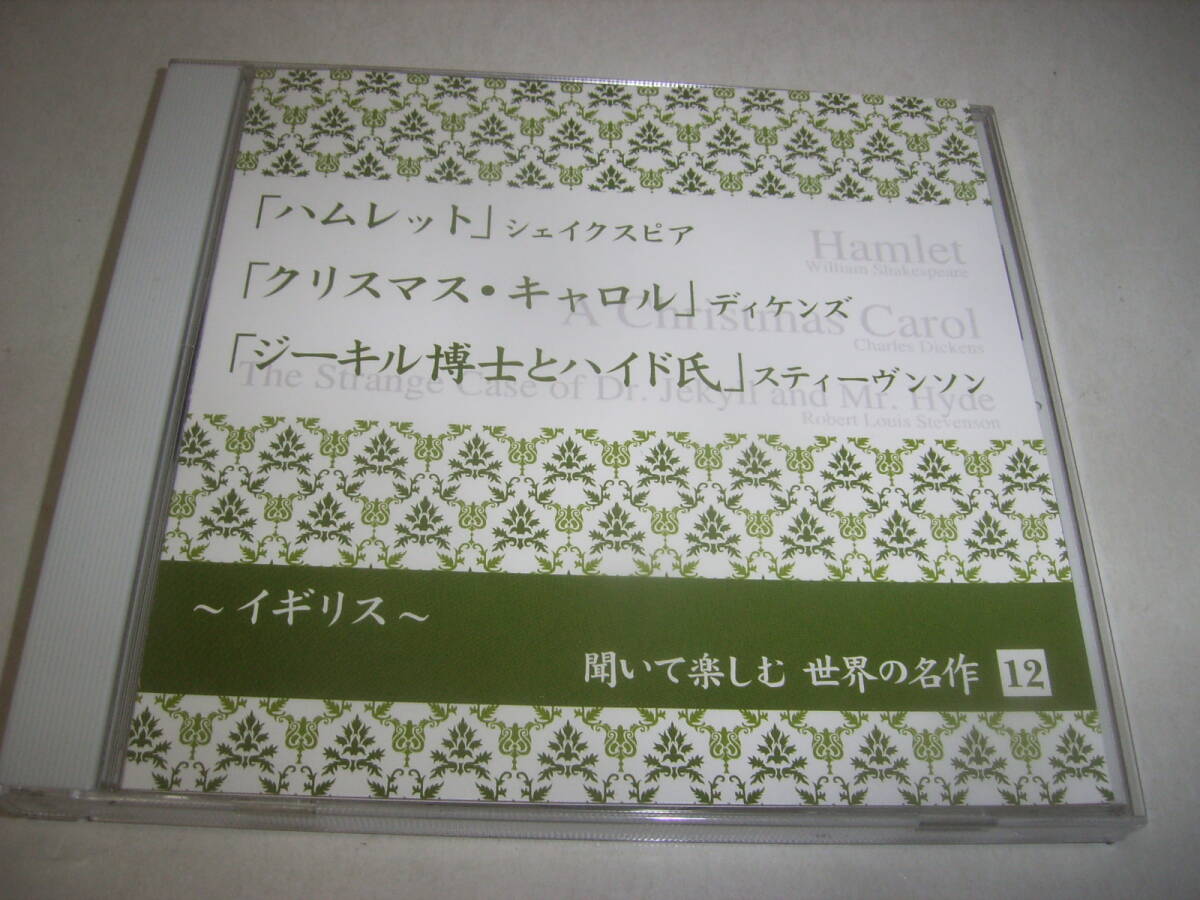 「ハムレット」シェイクスピア
Hamlet
William Shakespeare
「クリスマス・キャロル」ディケンズ
A Christmas Carol
Charles Dickens
「ジーキル博士とハイド氏」スティーヴンソン
The Strange Case of Dr. Jekyll and Mr. Hyde
Robert Louis Stevenson
~イギリス~
聞いて楽しむ 世界の名作 12